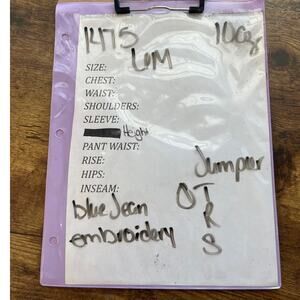 1475 10oz
L M
SIZE:
CHEST:
WAIST:
SHOULDERS:
SLEEVE:
Height
PANT WAIST:
RISE:
HIPS:
INSEAM:
Jumper
O T R S
blue Jean
embroidery